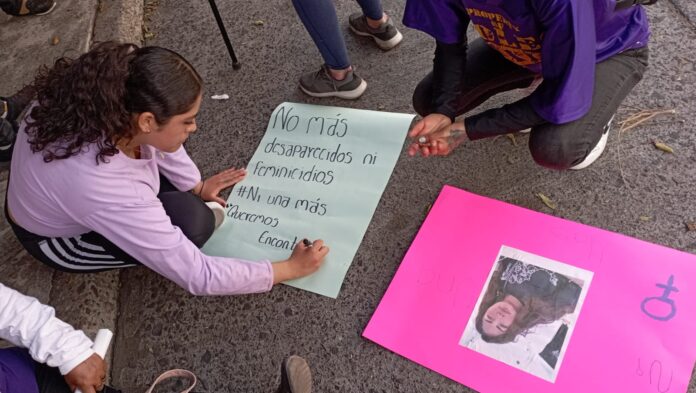 No más
desaparecidos ni
feminicidios
#Ni una más
Queremos
Encont
PROPERTY OF